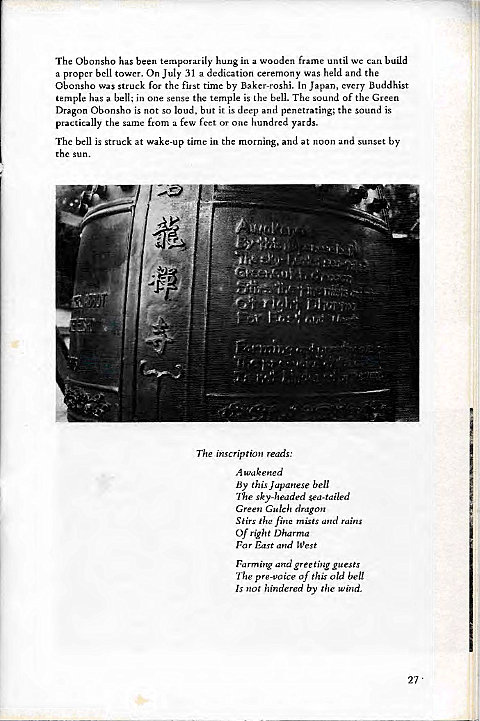 The Obonsho has been temporarily hung in a wooden frame until we can build
a proper bell tower. On July 31 a dedication ceremony was held and the
Obonsho was struck for the first time by Baker-roshi. In Japan, every Buddhist
temple has a bell; in one sense the temple is the bell. The sound of the Green
Dragon Obonsho is not so loud, but it is deep and penetrating; the sound is
practically the same from a few feet or one hundred yards.
The bell is struck at wake-up time in the morning, and at noon and sunset by
the sun.
龍
禅
寺
Awakened
By this Japanese bell
Of right Dharma
For East and West
The inscription reads:
Awakened
By this Japanese bell
The sky-headed sea-tailed
Green Gulch dragon
Stirs the fine mists and rains
Of right Dharma
For East and West
Farming and greeting guests
The pre-voice of this old bell
Is not hindered by the wind.
27